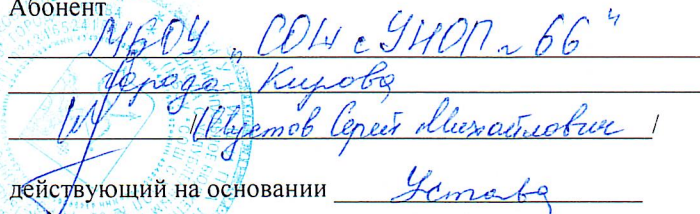 Абонент
МБОУ „СОШ с УИОП № 66"
города Кирова
/ Сергей Михайлович /
действующий на основании Устава